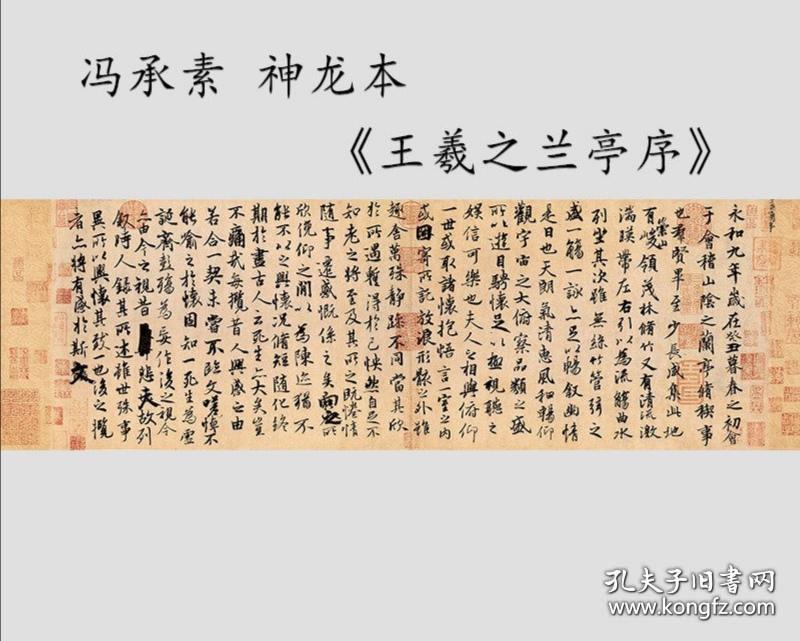 冯承素 神龙本
《王羲之兰亭序》
永和九年歲在癸丑暮春之初會
于會稽山陰之蘭亭脩稧事
也羣賢畢至少長咸集此地
有崇山峻領茂林脩竹又有清流激
湍暎帶左右引以為流觴曲水
列坐其次雖無絲竹管弦之
盛一觴一詠亦足以暢敘幽情
是日也天朗氣清惠風和暢仰
觀宇宙之大俯察品類之盛
所以遊目騁懷足以極視聽之
娛信可樂也夫人之相與俯仰
一世或取諸懷抱悟言一室之內
或因寄所託放浪形骸之外雖
趣舍萬殊靜躁不同當其欣
於所遇蹔得於己怏然自足不
知老之將至及其所之既惓情
隨事遷感慨係之矣向之所
欣俛仰之閒以為陳迹猶不
能不以之興懷況脩短隨化終
期於盡古人云死生亦大矣豈
不痛哉每攬昔人興感之由
若合一契未嘗不臨文嗟悼不
能喻之於懷固知一死生為虛
誕齊彭殤為妄作後之視今
亦由今之視昔悲夫故列
敘時人錄其所述雖世殊事
異所以興懷其致一也後之攬
者亦將有感於斯文
孔夫子旧书网
www.kongfz.com